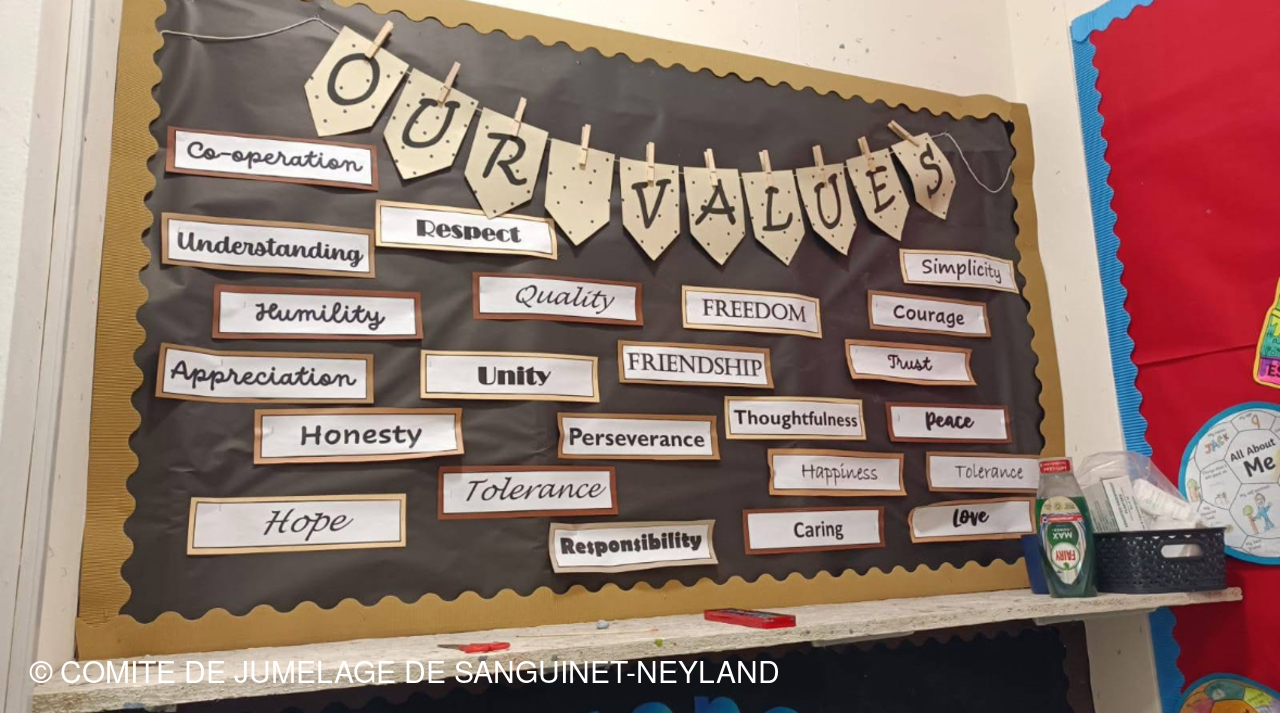 OUR VALUES
Co-operation
Understanding
Respect
Simplicity
Humility
Quality
FREEDOM
Courage
Appreciation
Unity
FRIENDSHIP
Trust
Honesty
Perseverance
Thoughtfulness
Peace
Happiness
Tolerance
Tolerance
Hope
Responsibility
Caring
Love
FAIRY
MAX
All About
Me
JACK
© COMITE DE JUMELAGE DE SANGUINET-NEYLAND